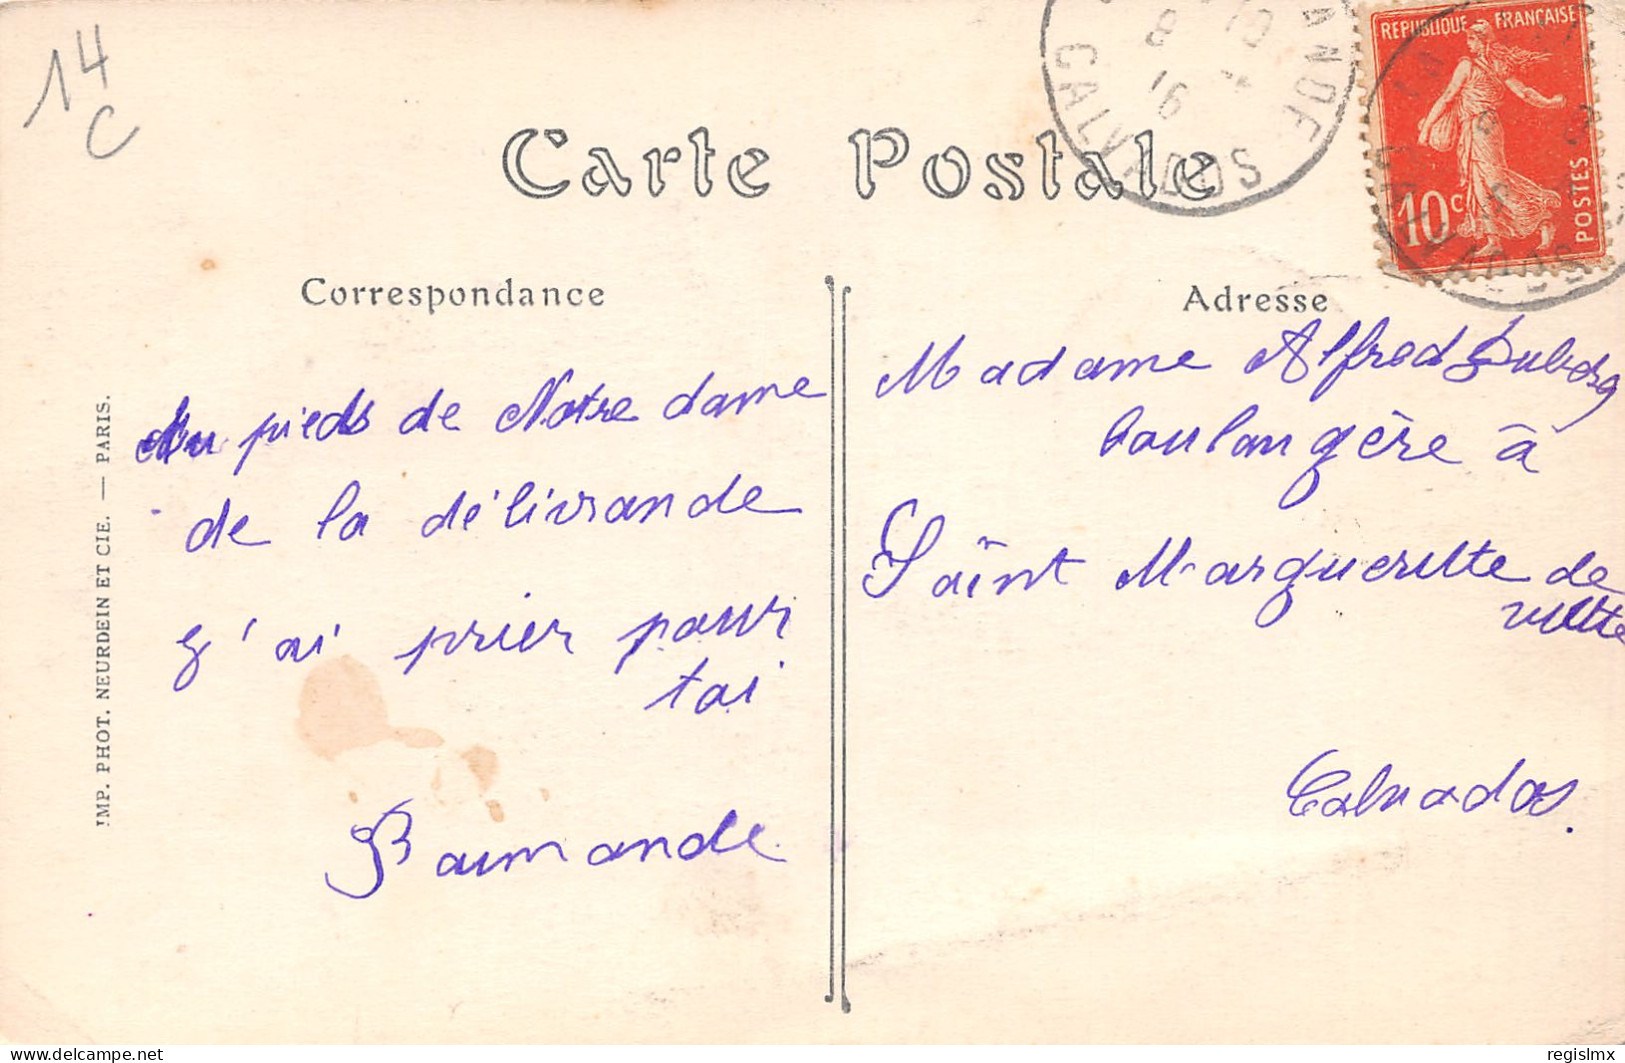 14
C
Carte Postale
CALVADOS
REPUBLIQUE FRANÇAISE
10c
POSTES
Correspondance
Au pieds de Notre dame
de la délivrande
g'ai prier pour
toi
Raimonde
Adresse
Madame Alfred Duborg
boulangère à
Saint Margueritte de
vilitte
Calvados.
IMP. PHOT. NEURDEIN ET CIE. — PARIS.
https://www.delcampe.net
regislmx